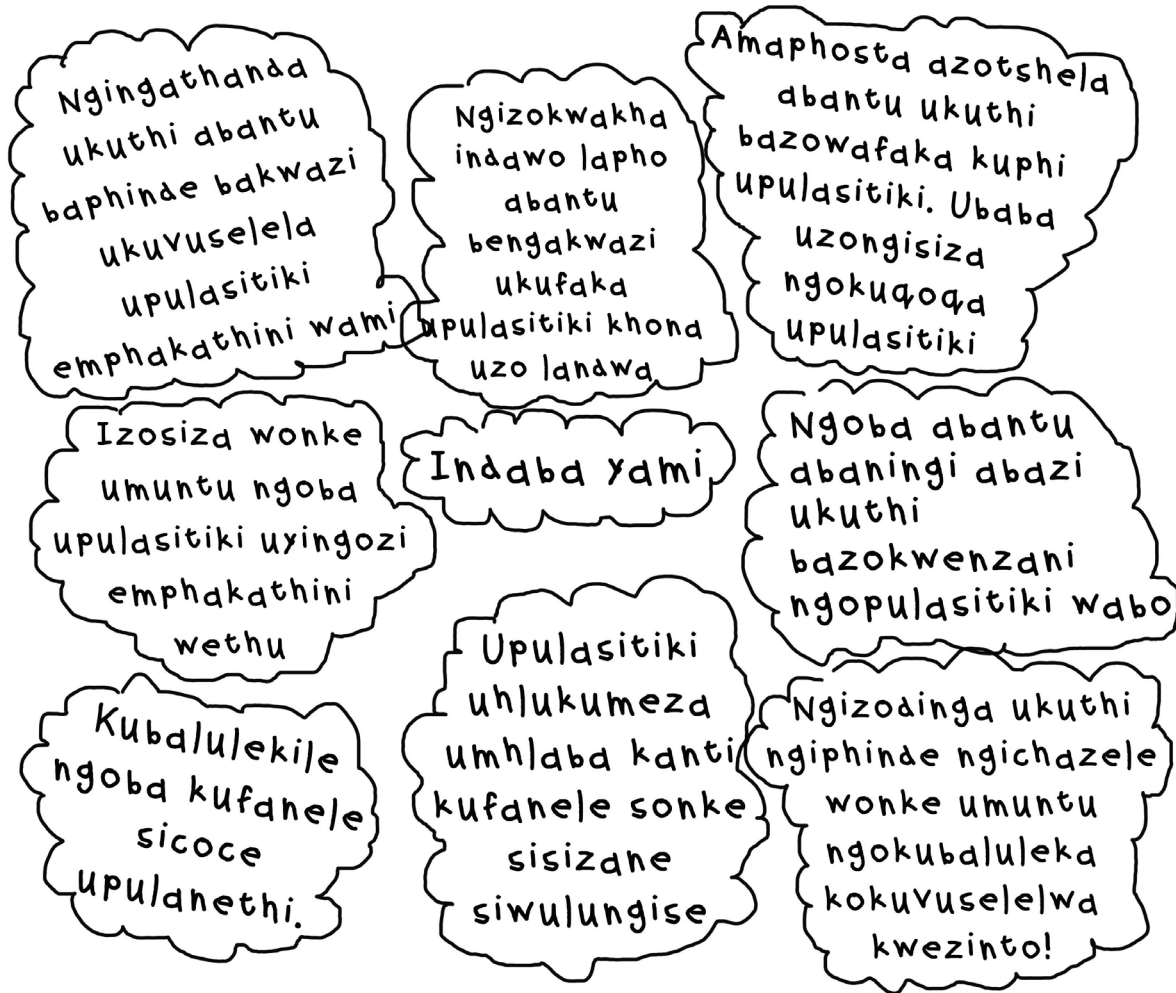 Ngingathanda
ukuthi abantu
baphinde bakwazi
ukuvuselela
upulasitiki
emphakathini wami
Ngizokwakha
indawo lapho
abantu
bengakwazi
ukufaka
upulasitiki khona
uzo landwa
Amaphosta azotshela
abantu ukuthi
bazowafaka kuphi
upulasitiki. Ubaba
uzongisiza
ngokuqoqa
upulasitiki
Izosiza wonke
umuntu ngoba
upulasitiki uyingozi
emphakathini
wethu
Indaba yami
Ngoba abantu
abaningi abazi
ukuthi
bazokwenzani
ngopulasitiki wabo
Kubalulekile
ngoba kufanele
sicoce
upulanethi.
Upulasitiki
uhlukumeza
umhlaba kanti
kufanele sonke
sisizane
siwulungise
Ngizodinga ukuthi
ngiphinde ngichazele
wonke umuntu
ngokubaluleka
kokuvuselelwa
kwezinto!